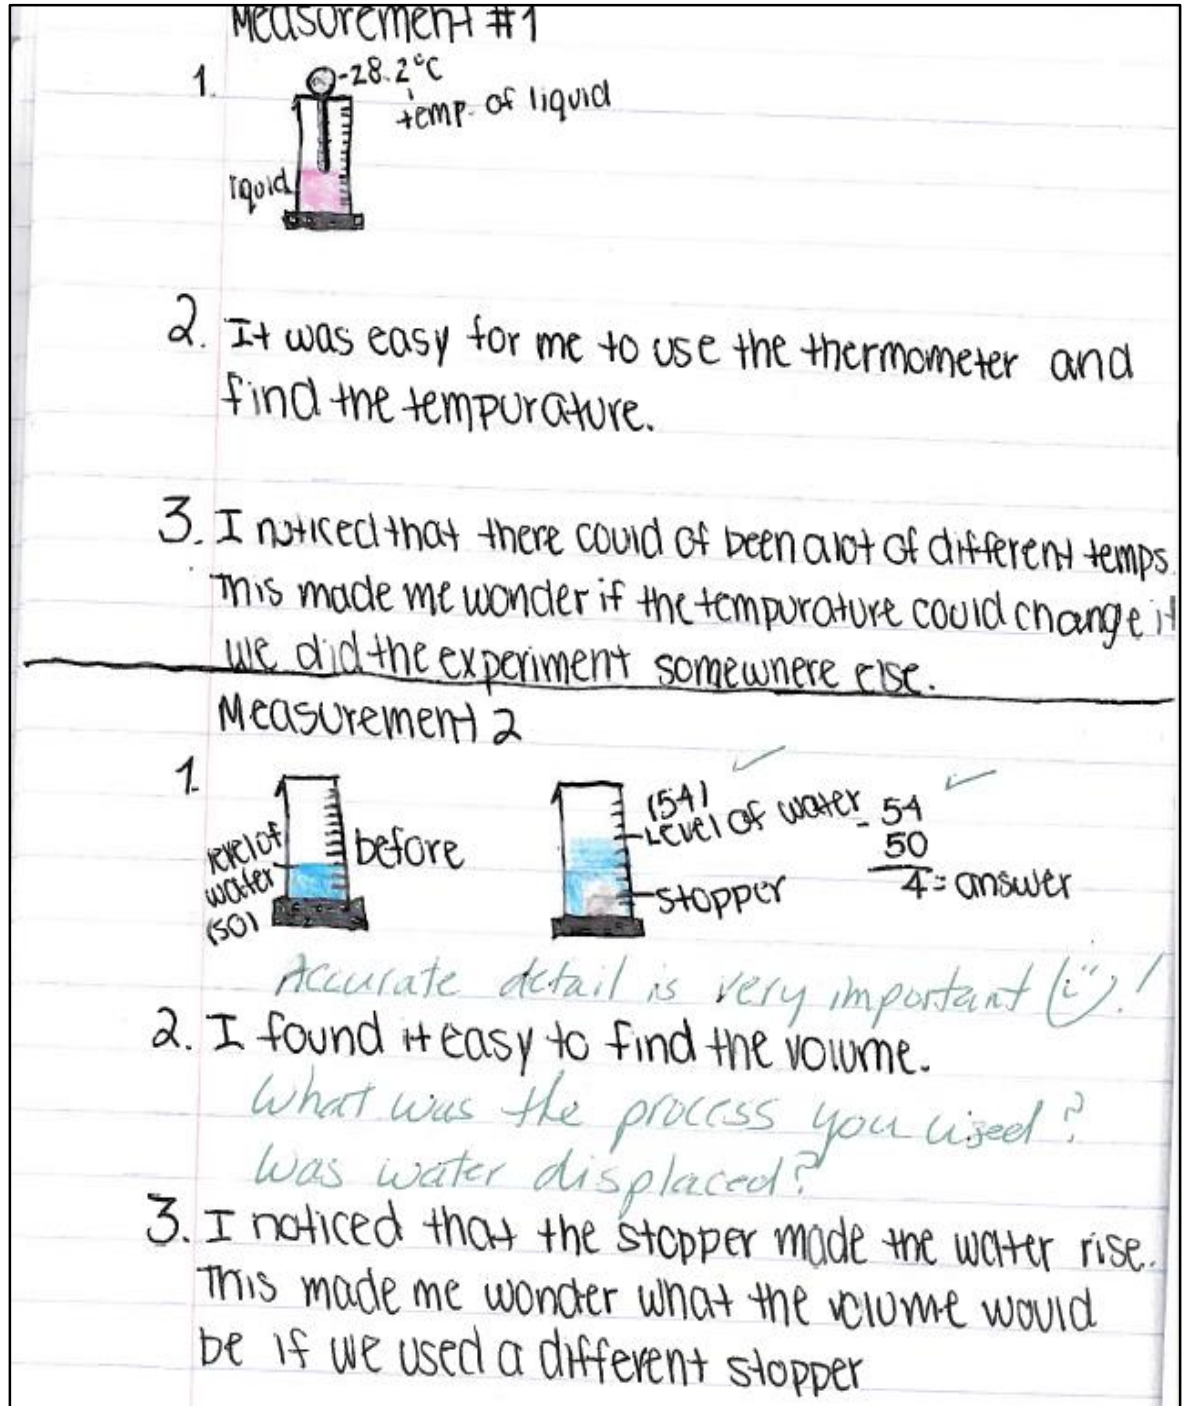 Measurement #1
1.
-28.2°C
temp. of liquid
liquid
2. It was easy for me to use the thermometer and
find the tempurature.
3. I noticed that there could of been alot of different temps.
This made me wonder if the tempurature could change if
we did the experiment somewhere else.
Measurement 2
1.
level of
water
(50)
before
(54)
Level of water
stopper
- 54
50
4 = answer
Accurate detail is very important (¨)!
2. I found it easy to find the volume.
What was the process you used?
Was water displaced?
3. I noticed that the stopper made the water rise.
This made me wonder what the volume would
be if we used a different stopper